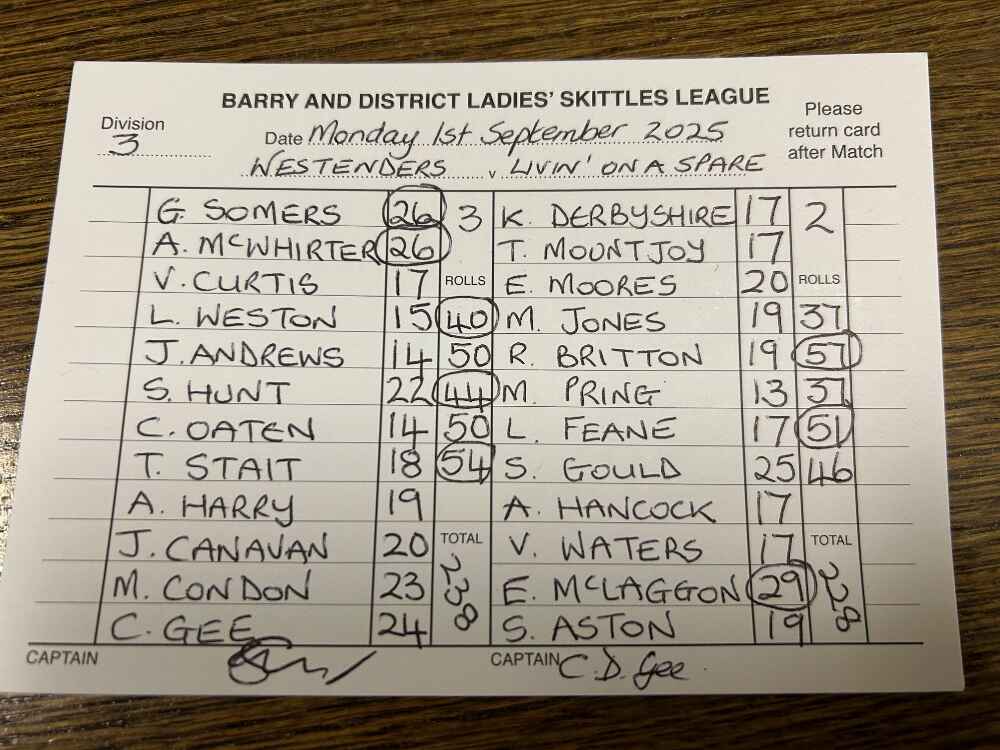 BARRY AND DISTRICT LADIES' SKITTLES LEAGUE
Please return card after Match
Division 3
Date Monday 1st September 2025
WESTENDERS v LIVIN' ON A SPARE
G. SOMERS 26 3 K. DERBYSHIRE 17 2
A. McWHIRTER 26 T. MOUNTJOY 17
V. CURTIS 17 ROLLS E. MOORES 20 ROLLS
L. WESTON 15 40 M. JONES 19 37
J. ANDREWS 14 50 R. BRITTON 19 57
S. HUNT 22 44 M. PRING 13 37
C. OATEN 14 50 L. FEANE 17 51
T. STAIT 18 54 S. GOULD 25 46
A. HARRY 19 A. HANCOCK 17
J. CANAVAN 20 TOTAL V. WATERS 17 TOTAL
M. CONDON 23 238 E. McLAGGON 29 228
C. GEE 24 S. ASTON 19
CAPTAIN CAPTAIN C.D. Gee